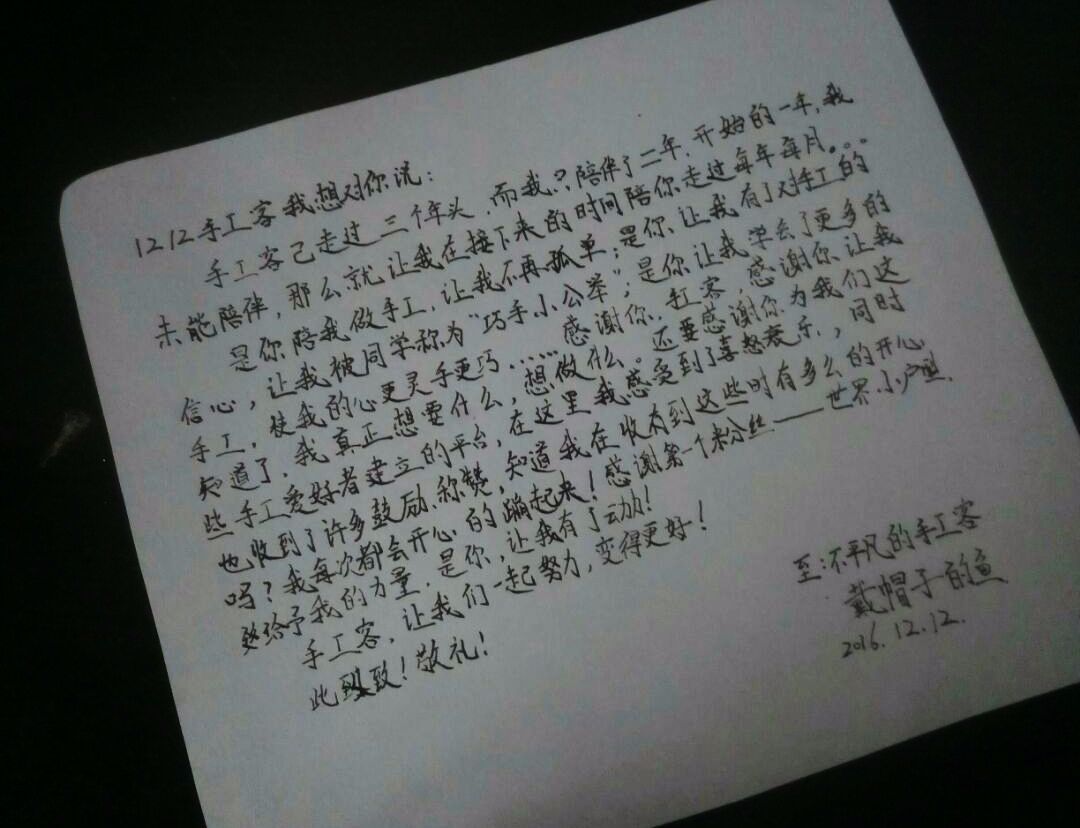 1212手工客我想对你说：
手工客已走过三个年头，而我只陪伴了二年，开始的一年，我
未能陪伴，那么就让我在接下来的时间陪你走过每年每月。。。
是你陪我做手工，让我不再孤单；是你，让我有了对手工的
信心，让我被同学称为“巧手小公举”；是你让我学会了更多的
手工，使我的心更灵手更巧……感谢你，手工客，感谢你让我
知道了，我真正想要什么，想做什么。还要感谢你为我们这
些手工爱好者建立的平台，在这里我感受到了喜怒哀乐，同时
也收到了许多鼓励、称赞，知道我在收到这些时有多么的开心
吗？我每次都会开心的蹦起来！感谢第一个粉丝——世界小
给予我的力量，是你，让我有了动力！
手工客，让我们一起努力，变得更好！
此致！敬礼！
至：不平凡的手工客
戴帽子的鱼
2016.12.12.